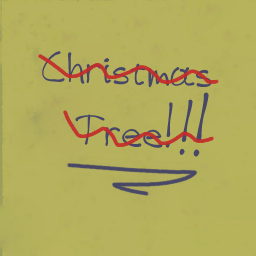 Christmas
Tree!!!